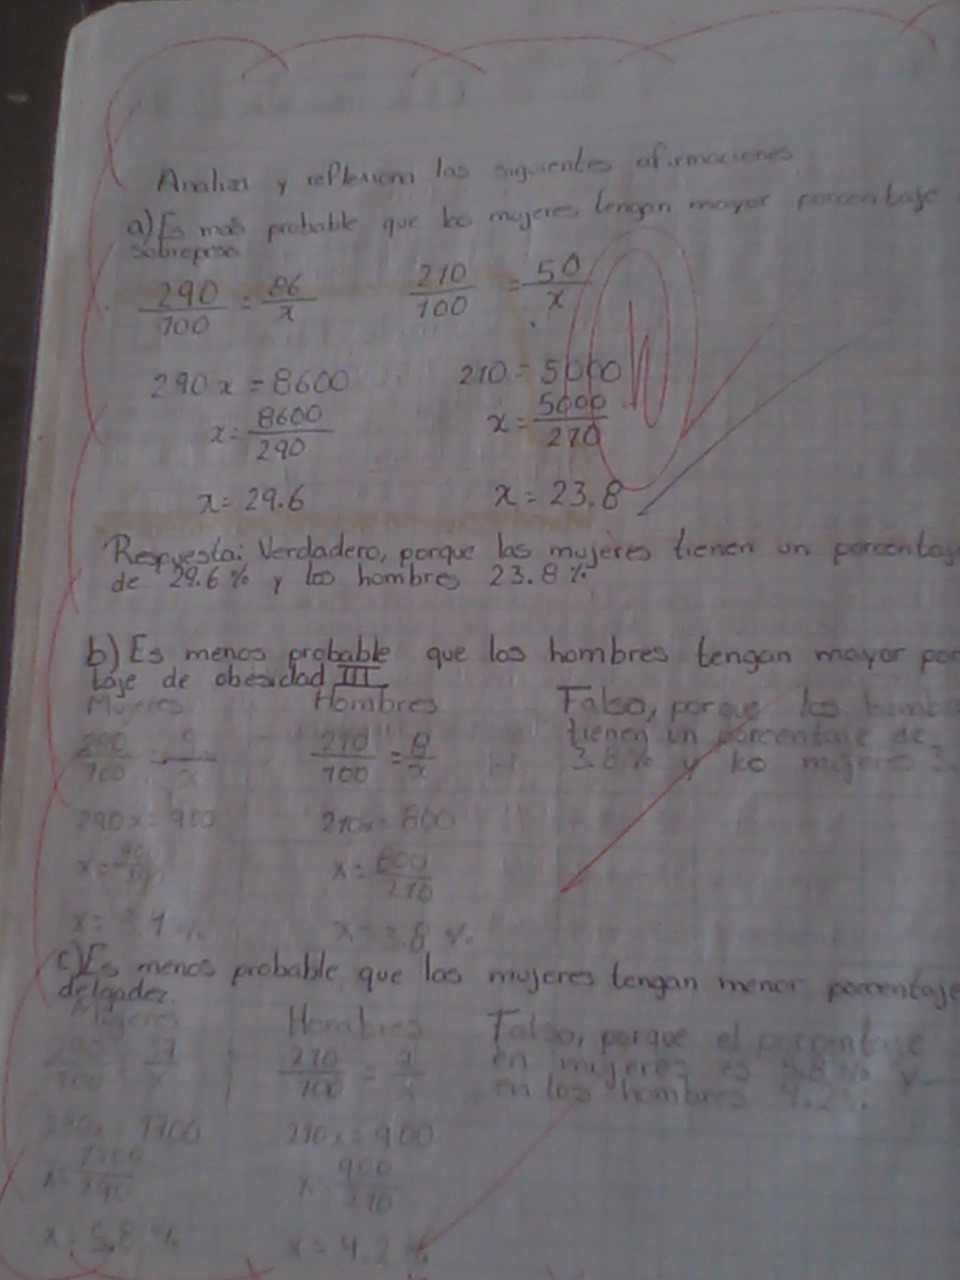 Analiza y reflexiona las siguientes afirmaciones
a) Es más probable que las mujeres tengan mayor porcentaje
sobrepeso
290/100 = 86/x 210/100 = 50/x
290x = 8600 210 = 5000
x = 8600/290 x = 5000/210
x = 29.6 x = 23.8
Respuesta: Verdadero, porque las mujeres tienen un porcentaje
de 29.6% y los hombres 23.8%
b) Es menos probable que los hombres tengan mayor por
taje de obesidad III
Mujeres Hombres Falso, porque los homb
290/100 = 210/100 = 8/x tienen un porcentaje de
3.8% y las mujeres 3.
290x = 900 210x = 800
x = 900/290 x = 800/210
x = 3.1% x = 3.8%
c) Es menos probable que las mujeres tengan menor porcentaje
delgadez.
Mujeres Hombres Falso, porque el porcentaje
290/100 = 210/100 = en mujeres es 5.8% y
en los hombres 4.2%.
290x = 1700 210x = 900
x = 1700/290 x = 900/210
x = 5.8% x = 4.2%